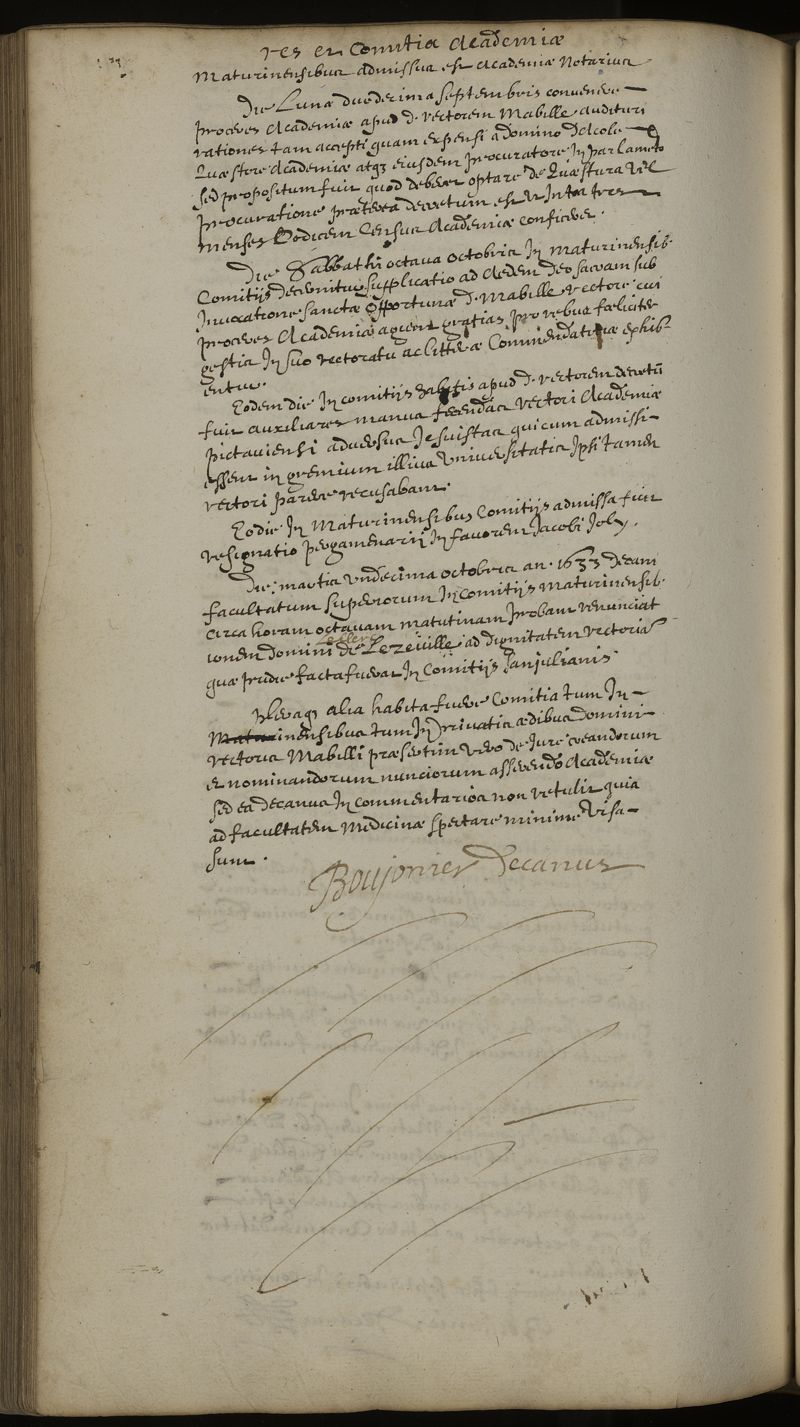 res en Comitia Academiæ
Maturinensibus admissus est Academiæ Notarius
Die Lunæ duodecima septembris convenere
proceres Academiæ apud d. rectorem Mabille audituri
rationes tam accepti quam expensi a domino
Quæstore Academiæ atq eiusdem procuratore In parlamēto
sed propositum fuit quod deberet optare de Quæstura vel
procuratione præterea decretum est ut Intra tres
menses Codicem Census Academiæ conficeret.
Die Sabbathi octava octobris In maturinensib.
Comitijs decernitur supplicatio ad Aedem deo sacram sub
Invocatione sanctæ Opportunæ d. Mabille rectore cui
proceres Academiæ agunt gratias pro rebus fæliciter
gestis In suo rectoratu ac litteræ Commendatitiæ exhib-
entur.
Eodem die In comitijs habitis apud d. rectorem decretū
fuit auxiliares manus ferendas rectori Academiæ
pictaviensi adversus Jesuistas qui cum admissi
essent in gremium illius universitatis Ipsi tamen
rectori parere recusabant.
Eodie In Maturinensibus Comitijs admissa fuit
resignatio pergamenarij In favorem Jacobi Joly.
Die martis undecima octobris an. 1633 decani
facultatum superiorum In comitijs maturinensib.
circa horam octavam matutinam probant renunciat
ionem domini de Lezeiville ad dignitatem rectoriā
quæ pridie facta fuerat In Comitijs sanjulianis
pleraq alia habita fuere Comitia tum In
Maturinensibus tum In privatis ædibus domini
rectoris Mabilli præsertim vero de Jure creandorum
et nominandorum nunciorum asserendo Academiæ
sed ea decanus In commentarios non retulit quia
ad facultatem Medicinæ spectare minime visa
sunt.
Boujonier Decanus